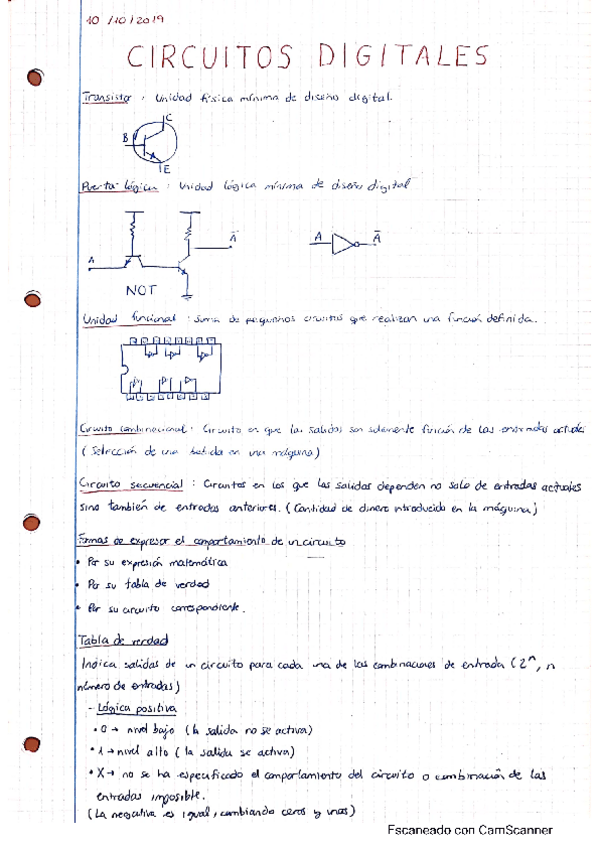 10/10/2019
CIRCUITOS DIGITALES
Transistor : Unidad física mínima de diseño digital.
C
B
E
Puerta lógica : Unidad lógica mínima de diseño digital
A
Ā
A
Ā
NOT
Unidad funcional : Suma de pequeños circuitos que realizan una función definida.
Circuito combinacional : Circuito en que las salidas son solamente función de las entradas actuales
(Selección de una bebida en una máquina)
Circuito secuencial : Circuitos en los que las salidas dependen no solo de entradas actuales
sino también de entradas anteriores. (Cantidad de dinero introducido en la máquina)
Formas de expresar el comportamiento de un circuito
• Por su expresión matemática
• Por su tabla de verdad
• Por su circuito correspondiente.
Tabla de verdad
Indica salidas de un circuito para cada una de las combinaciones de entrada (2^n, n
número de entradas)
- Lógica positiva
• 0 → nivel bajo (la salida no se activa)
• 1 → nivel alto (la salida se activa)
• X → no se ha especificado el comportamiento del circuito o combinación de las
entradas imposible.
(La negativa es igual, cambiando ceros y unos)
Escaneado con CamScanner